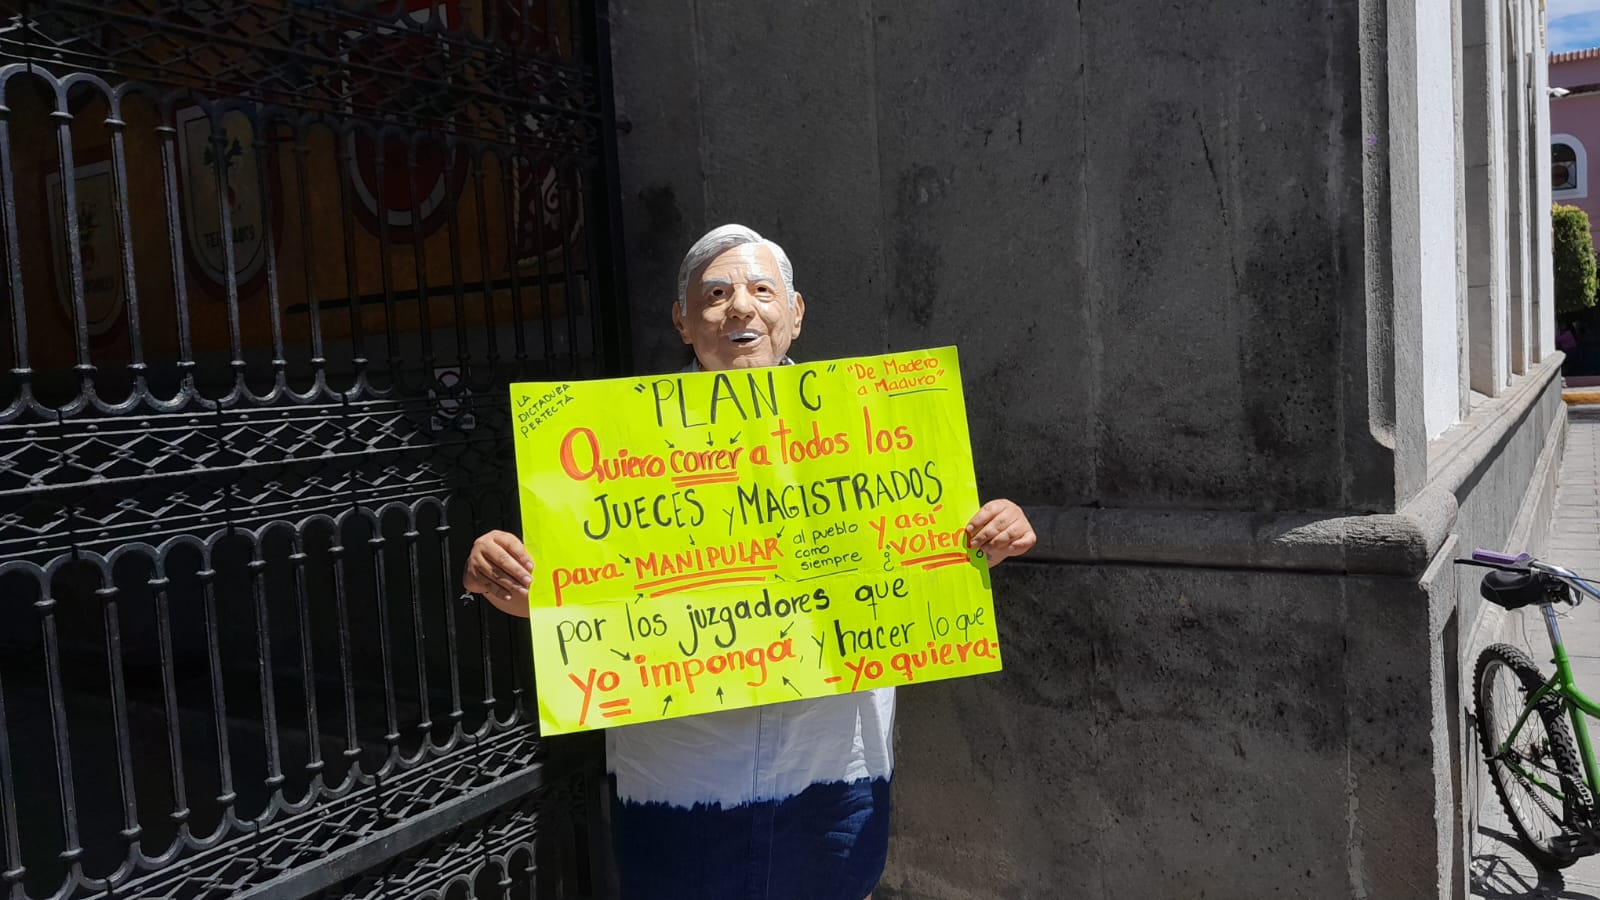 LA
DICTADURA
PERFECTA
"PLAN C"
"De Madero
a Maduro"
Quiero correr a todos los
JUECES y MAGISTRADOS
para MANIPULAR
al pueblo
como
siempre
y así
¿voten?
por los juzgadores que
yo imponga, y hacer lo que
- yo quiera -